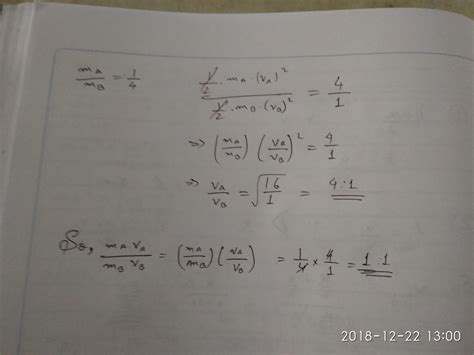 m_A/m_B = 1/4
(1/2 · m_A · (v_A)²)/(1/2 · m_B · (v_B)²) = 4/1
=> (m_A/m_B) (v_A/v_B)² = 4/1
=> v_A/v_B = √(16/1) = 4:1
So, (m_A v_A)/(m_B v_B) = (m_A/m_B) (v_A/v_B) = 1/4 × 4/1 = 1:1
2018-12-22 13:00